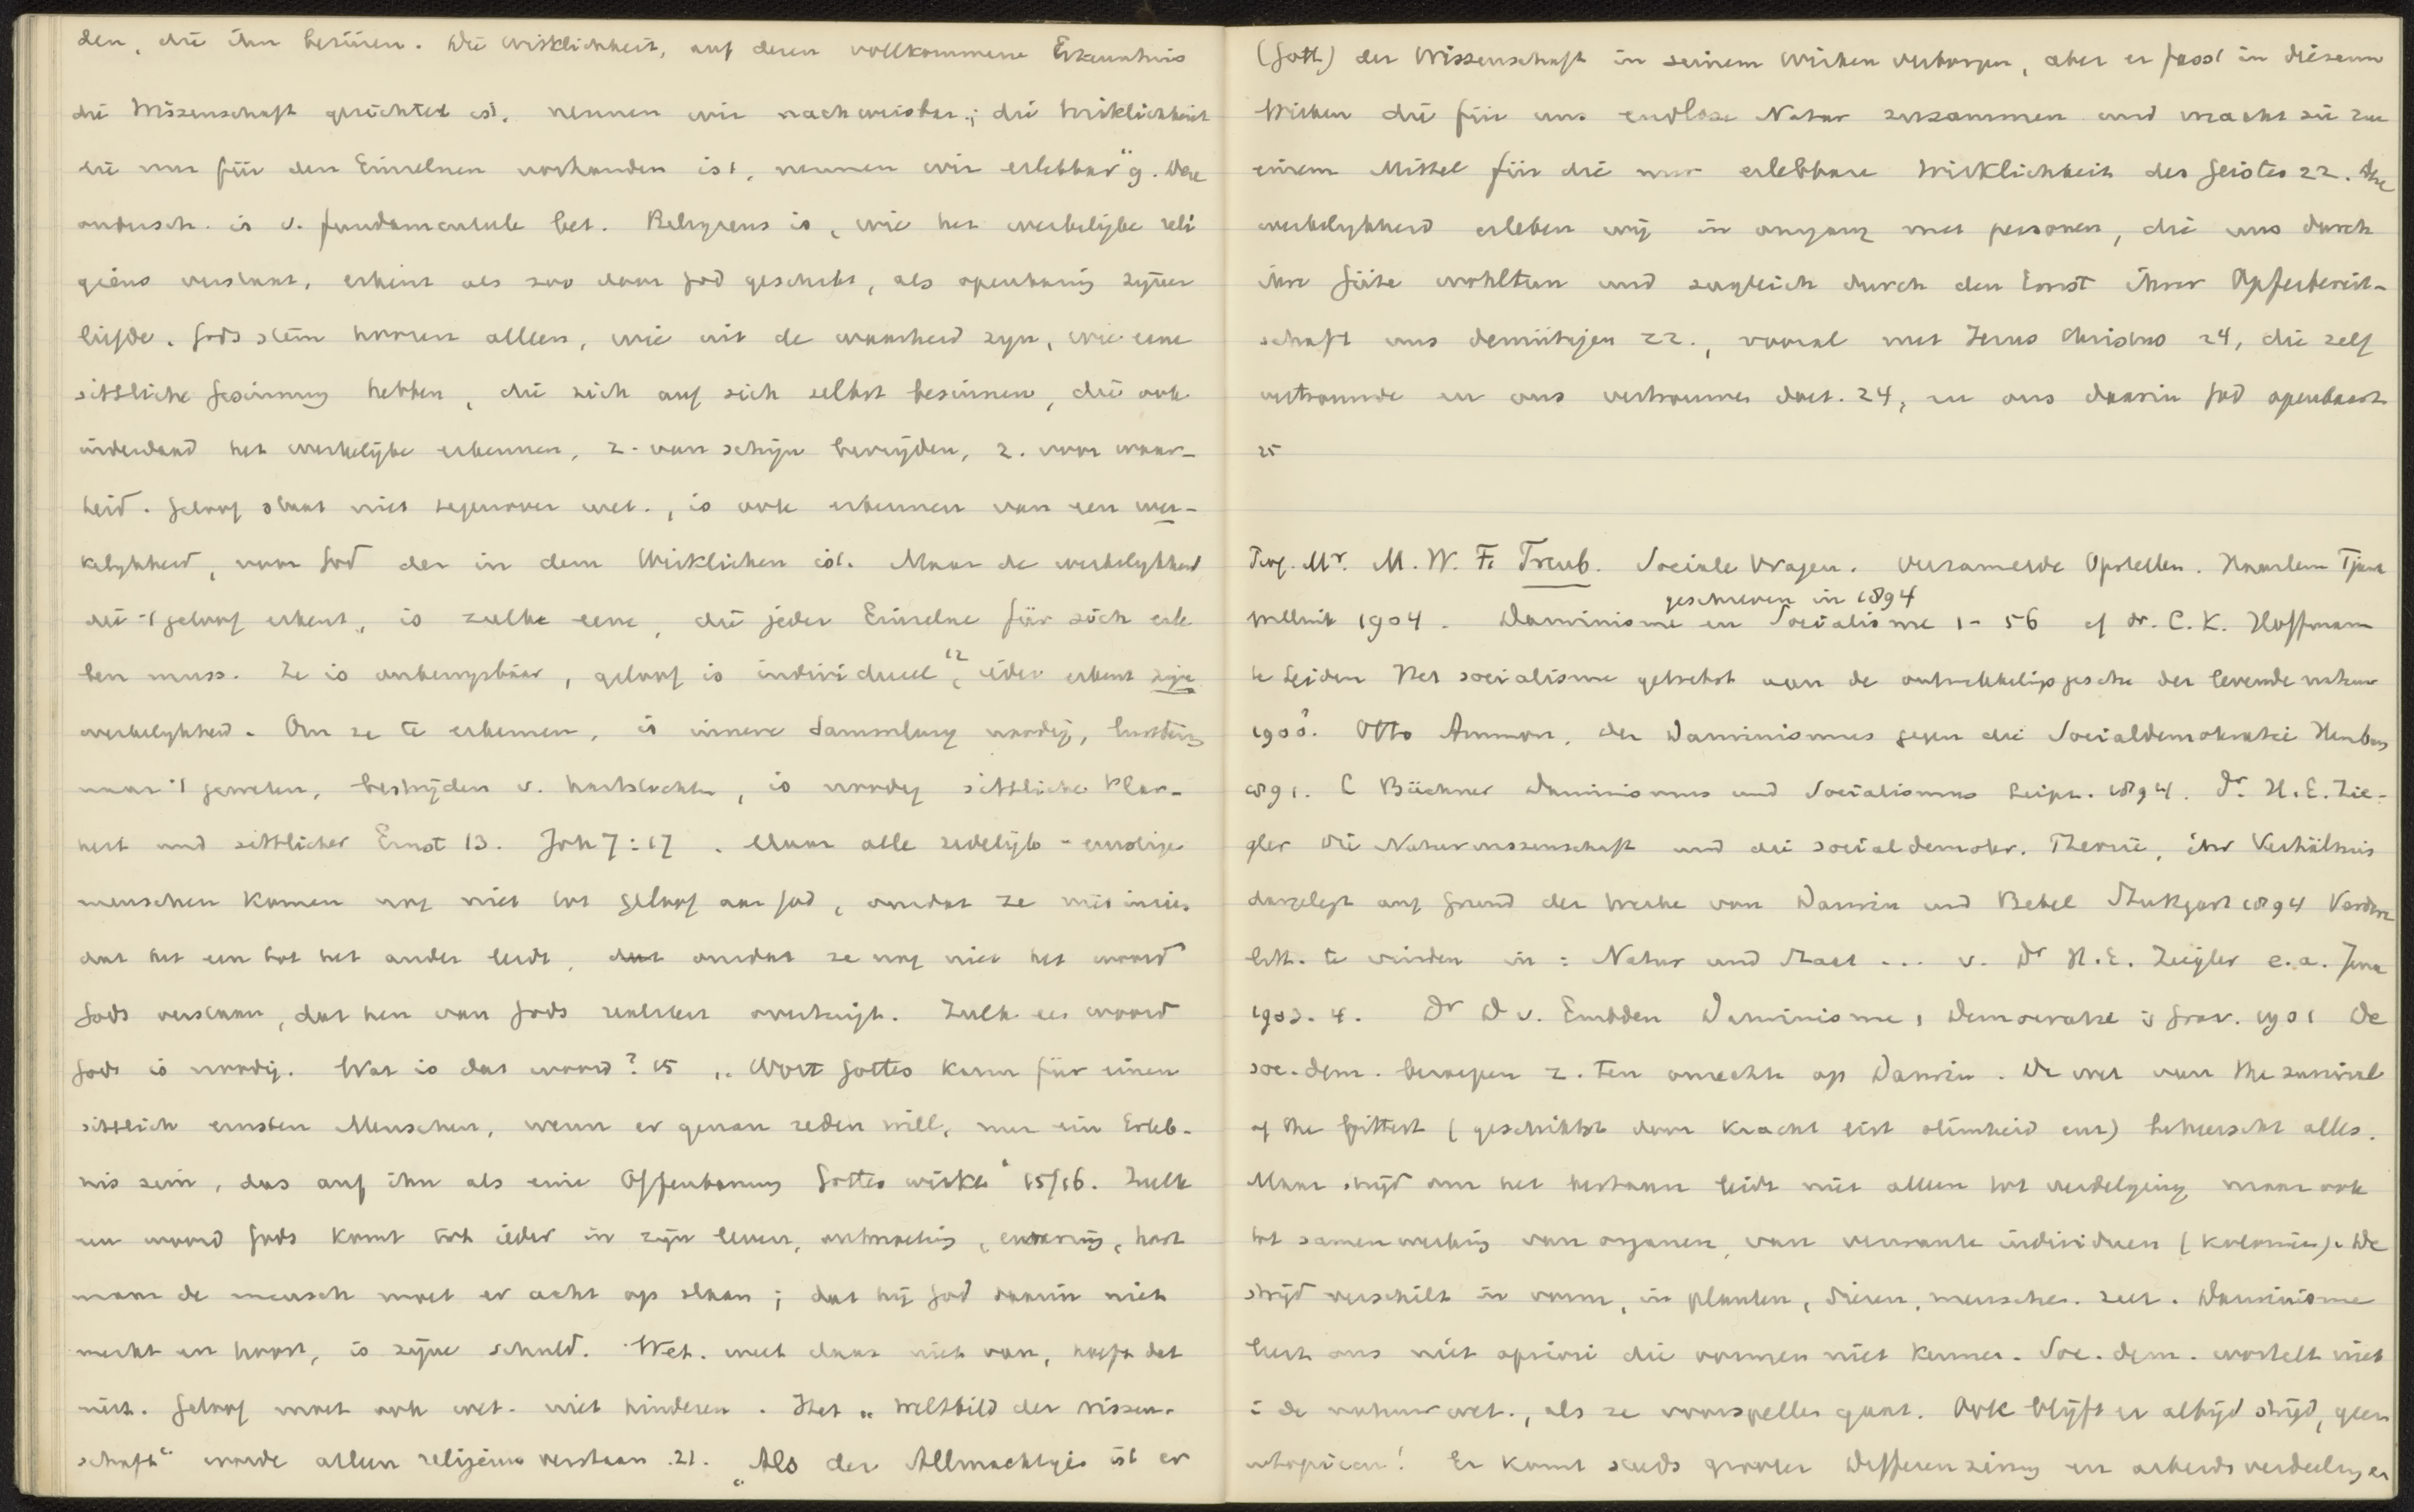 den, die ihn berüren. Die Wirklichkeit, auf deren vollkommene Erkenntnis
die Wissenschaft gerichtet ist, nennen wir nachweisbar; die Wirklichkeit
die nur für den Einzelnen vorhanden ist, nennen wir erlebbar" 9. Deze
ondersch. is v. fundamenteele bet. Religieus is, wie het werkelijke reli
gieus verstaat, erkent als zoo door God geschikt, als openbaring zijner
liefde. Gods stem hooren alleen, wie uit de waarheid zijn, wie eene
sittliche Gesinnung hebben, die sich auf sich selbst besinnen, die ook
inderdaad het werkelijke erkennen, z. van schijn bevrijden, z. voor waar-
heid. Geloof staat niet tegenover wet., is ook erkennen van een wer-
kelijkheid, van God der in dem Wirklichen ist. Maar de werkelijkheid
die 't geloof erkent, is zulke eene, die jeder Einzelne für sich erle
ben muss. Ze is onbewijsbaar, geloof is individueel 12, ieder erkent zijne
werkelijkheid. Om ze te erkennen, is innere Sammlung noodig, luistering
naar 't geweten, bestrijden v. hartstochten, is noodig sittliche Klar-
heit und sittlicher Ernst 13. Joh 7:17. Maar alle zedelijk-ernstige
menschen komen nog niet tot geloof aan God, omdat ze niet inzien
dat het een tot het ander leidt, omdat ze nog niet het woord
Gods verstaan, dat hen van Gods realiteit overtuigt. Zulk een woord
Gods is noodig. Wat is dat woord? 15 „Wort Gottes kann für einen
sittlich ernsten Menschen, wenn er genau reden will, nur ein Erleb-
nis sein, das auf ihn als eine Offenbarung Gottes wirkt" 15/16. Zulk
een woord Gods komt tot ieder in zijn leven, ontmoeting, ervaring,
maar de mensch moet er acht op slaan; dat hij God daarin niet
merkt en hoort, is zijne schuld. Wet. weet daar niet van, hoeft dat
niet. Geloof moet ook wet. niet hinderen. Het „Weltbild der Wissen-
schaft" worde alleen religieus verstaan. 21. „Als der Allmächtige ist er
(Gott) der Wissenschaft in seinem Wirken verborgen, aber er fasst in diesem
Wirken die für uns endlose Natur zusammen und macht sie zu
einem Mittel für die nur erlebbare Wirklichkeit des Geistes 22. Die
werkelijkheid erleben wij in omgang met personen, die uns durch
ihre Güte wohltun und zugleich durch den Ernst ihrer Opferbereit-
schaft uns demütigen 22., vooral met Jezus Christus 24, die zelf
vertrouwde en ons vertrouwen doet. 24, en ons daarin God openbaart
25
Prof. Mr. M. W. F. Treub. Sociale Vragen. Verzamelde Opstellen. Haarlem Tjeenk
geschreven in 1894
Willink 1904. Darwinisme en Socialisme 1-56 cf Dr. C. K. Hoffmann
te Leiden Het socialisme getoetst aan de ontwikkelingsgesch. der levende natuur
1900? Otto Ammon, der Darwinismus gegen die Socialdemokratie Hamburg
1891. L Büchner Darwinismus und Socialismus Leipz. 1894. Dr. H. E. Zie-
gler Die Naturwissenschaft und die socialdemokr. Theorie, ihr Verhältnis
dargelegt auf Grund der Werke von Darwin und Bebel Stuttgart 1894 Verdere
litt. te vinden in: Natur und Staat... v. Dr H. E. Zeigler e.a. Jena
1903. 4. Dr D v. Embden Darwinisme, Democratie 's Grav. 1901 De
soc.-dem. beroepen z. ten onrechte op Darwin. De wet van the survival
of the fittest (geschiktst door kracht list slimheid enz) beheerscht alles.
Maar strijd om het bestaan leidt niet alleen tot verdelging maar ook
tot samenwerking van organen, van verwante individuen (kolonies). De
strijd verschilt in vorm, in planten, dieren, menschen. zeer. Darwinisme
leert ons niet apriori die vormen niet kennen. Soc. dem. wortelt niet
i de natuurwet., als ze voorspellen gaat. Ook blijft er altijd strijd, geen
utopieën! Er komt steeds grooter Differenziering en arbeidsverdeeling en